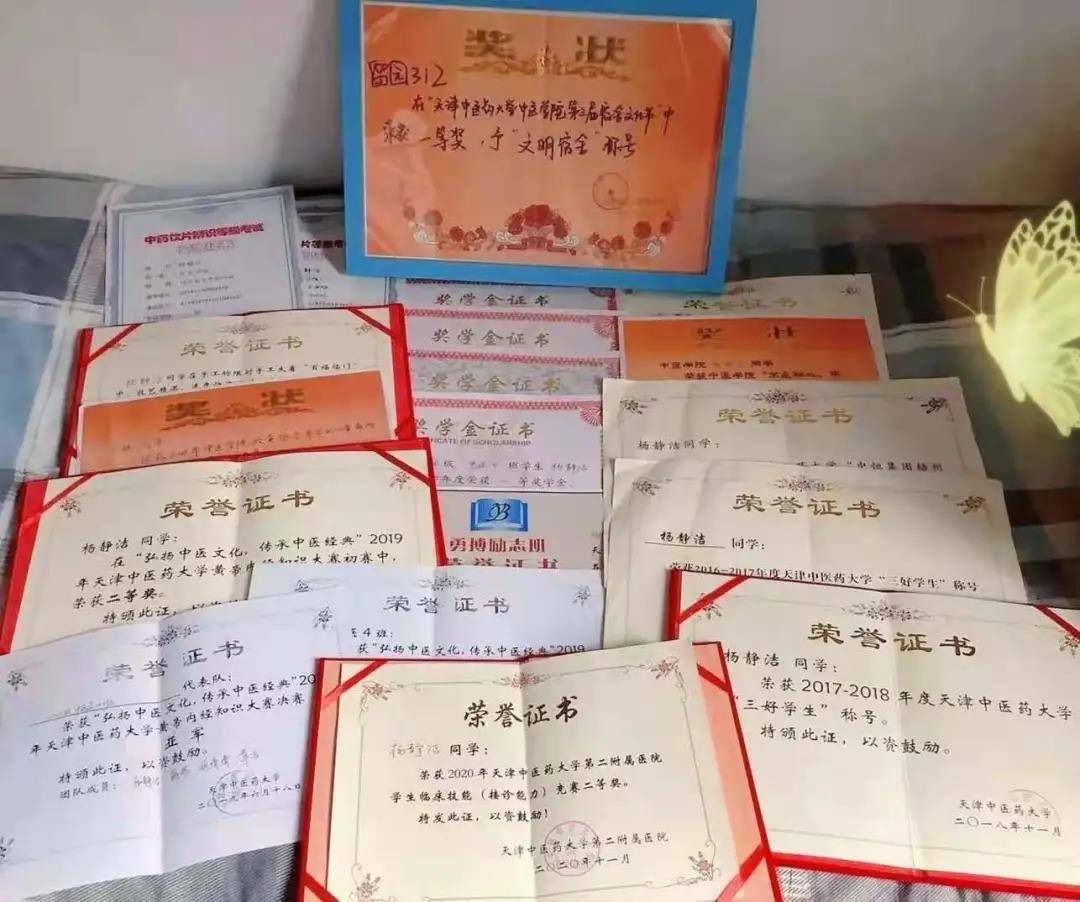 奖状
留园312
在"天津中医药大学中医学院第三届宿舍文化节"中
荣获一等奖,予"文明宿舍"称号
中药饮片辨识等级考试
奖学金证书
荣誉证书
奖学金证书
奖状
中医学院 同学
荣获中医学院
奖学金证书
荣誉证书
同学在手工物限时手工大赛"百福临门"
奖状
奖学金证书
CERTIFICATE OF SCHOLARSHIP
年度荣获 一等奖学金
荣誉证书
杨静洁同学:
勇搏励志班
荣誉证书
荣誉证书
杨静洁 同学:
荣获2016-2017年度天津中医药大学"三好学生"称号
荣誉证书
杨静洁 同学:
在"弘扬中医文化,传承中医经典"2019
年天津中医药大学黄帝内经知识大赛初赛中,
荣获二等奖。
特颁此证,以资
荣誉证书
4班:
获"弘扬中医文化,传承中医经典"2019
荣誉证书
代表队:
荣获"弘扬中医文化,传承中医经典"201
年天津中医药大学黄帝内经知识大赛决赛
亚军
特颁此证,以资鼓励。
团队成员:
天津中医药大学
二〇一九年六月十八日
荣誉证书
杨静洁 同学:
荣获2020年天津中医药大学第二附属医院
学生临床技能(接诊能力)竞赛二等奖。
特发此证,以资鼓励!
天津中医药大学第二附属医院
二〇二〇年十一月
荣誉证书
杨静洁 同学:
荣获2017-2018年度天津中医药大学
"三好学生"称号。
特颁此证,以资鼓励。
天津中医药大学
二〇一八年十一月